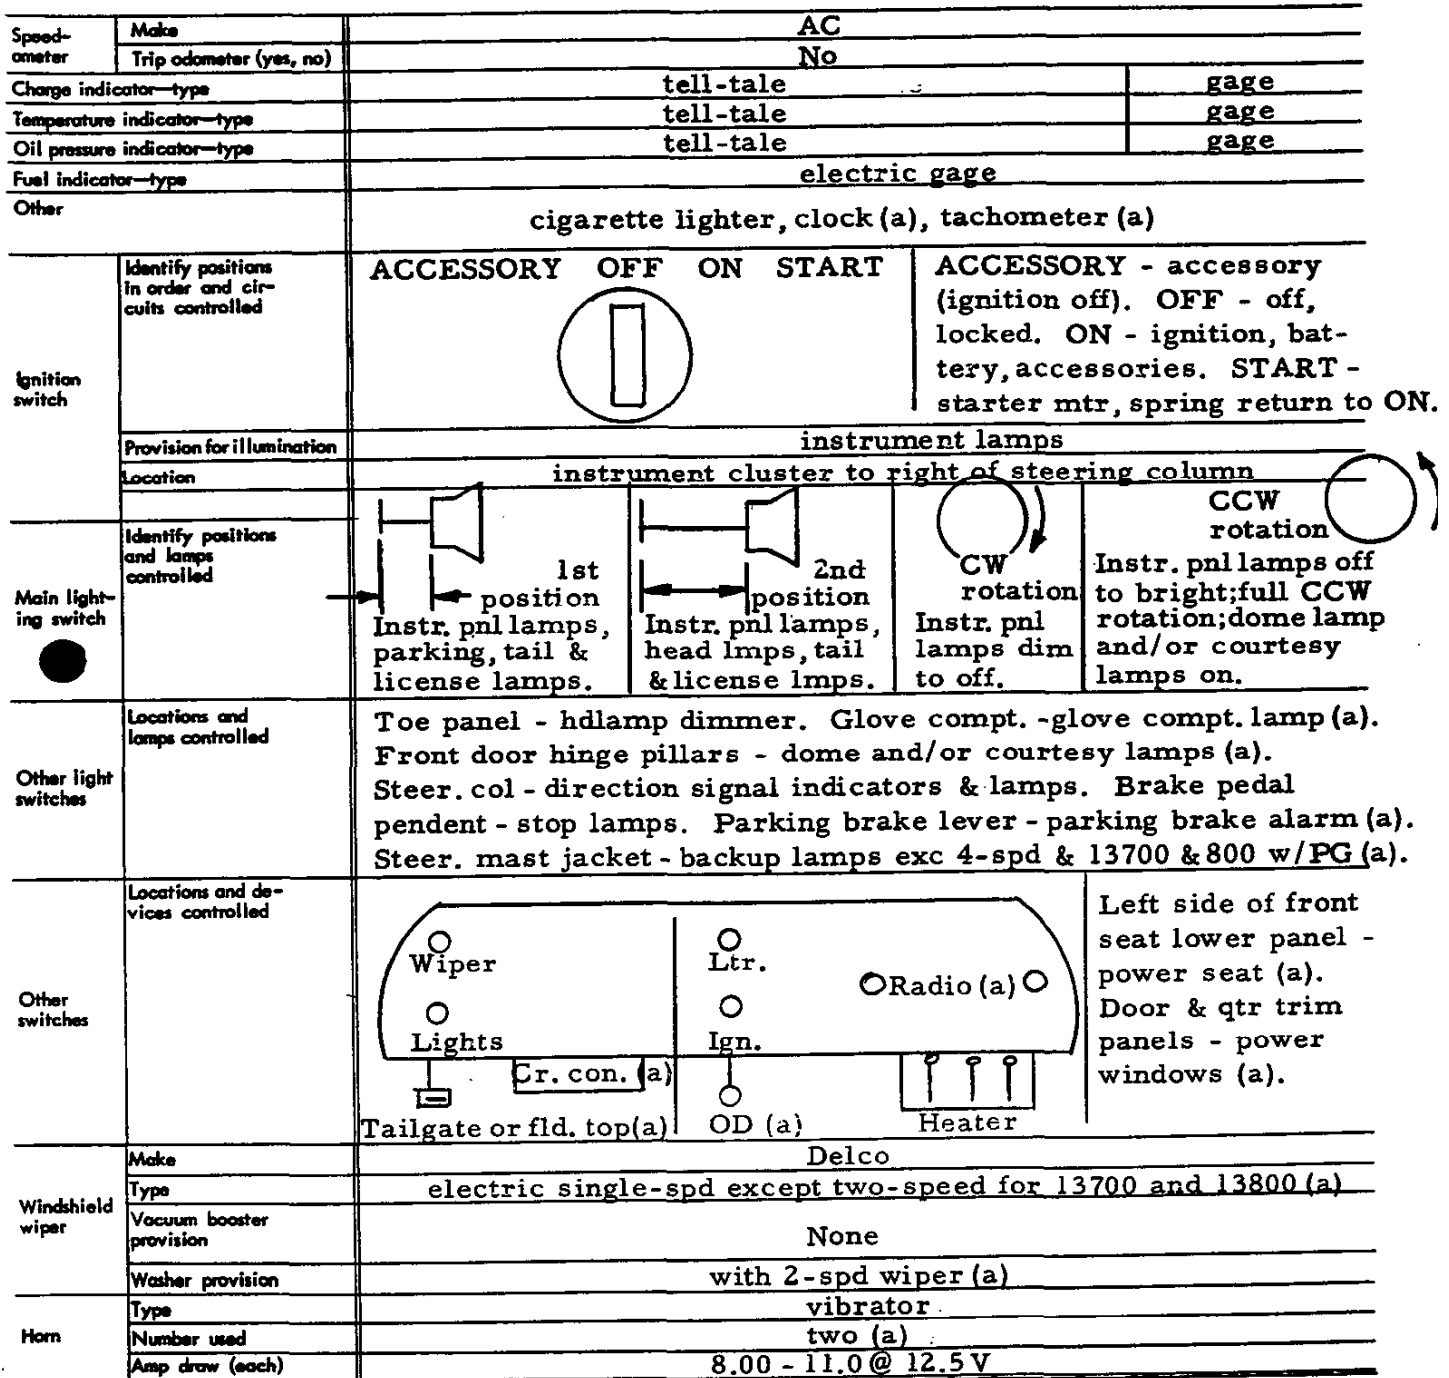 Speed-
ometer
Make
AC
Trip odometer (yes, no)
No
Charge indicator—type
tell-tale
gage
Temperature indicator—type
tell-tale
gage
Oil pressure indicator—type
tell-tale
gage
Fuel indicator—type
electric gage
Other
cigarette lighter, clock (a), tachometer (a)
Ignition
switch
Identify positions
in order and cir-
cuits controlled
ACCESSORY OFF ON START
ACCESSORY - accessory
(ignition off). OFF - off,
locked. ON - ignition, bat-
tery, accessories. START -
starter mtr, spring return to ON.
Provision for illumination
instrument lamps
Location
instrument cluster to right of steering column
Main light-
ing switch
Identify positions
and lamps
controlled
1st
position
Instr. pnl lamps,
parking, tail &
license lamps.
2nd
position
Instr. pnl lamps,
head lmps, tail
& license lmps.
CW
rotation
Instr. pnl
lamps dim
to off.
CCW
rotation
Instr. pnl lamps off
to bright; full CCW
rotation; dome lamp
and/or courtesy
lamps on.
Other light
switches
Locations and
lamps controlled
Toe panel - hdlamp dimmer. Glove compt. - glove compt. lamp (a).
Front door hinge pillars - dome and/or courtesy lamps (a).
Steer. col - direction signal indicators & lamps. Brake pedal
pendent - stop lamps. Parking brake lever - parking brake alarm (a).
Steer. mast jacket - backup lamps exc 4-spd & 13700 & 800 w/PG (a).
Other
switches
Locations and de-
vices controlled
Wiper
Lights
Cr. con. (a)
Tailgate or fld. top(a)
Ltr.
Ign.
OD (a)
Radio (a)
Heater
Left side of front
seat lower panel -
power seat (a).
Door & qtr trim
panels - power
windows (a).
Windshield
wiper
Make
Delco
Type
electric single-spd except two-speed for 13700 and 13800 (a)
Vacuum booster
provision
None
Washer provision
with 2-spd wiper (a)
Horn
Type
vibrator
Number used
two (a)
Amp draw (each)
8.00 - 11.0 @ 12.5 V